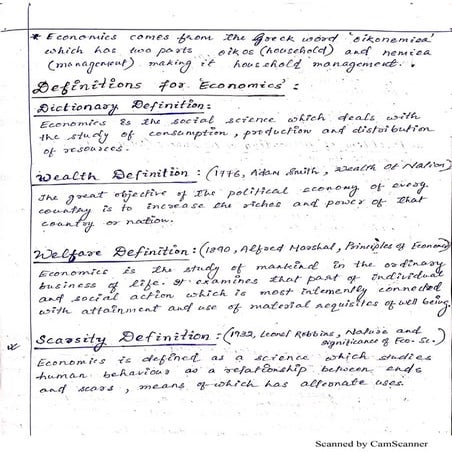 * Economics comes from the Greek word 'oikonemica'
which has two parts oikos (household) and nemica
(management) making it household management.
Definitions for 'Economics' :
Dictionary Definition:
Economics is the social science which deals with
the study of consumption, production and distribution
of resources.
Wealth Definition : (1776, Adam Smith, Wealth Of Nation)
The great objective of the political economy of every
country is to increase the riches and power of that
country or nation.
Welfare Definition : (1890, Alfred Marshal, Principles of Economic)
Economics is the study of mankind in the ordinary
business of life. It examines that part of individual
and social action which is most intemently connected
with attainment and use of material requisites of well being.
Scarsity Definition : (1932, Leonel Robbins, Nature and
significance of Eco. Sc.)
Economics is defined as a science which studies
human behaviour as a relationship between ends
and scars, means of which has alternate uses.
Scanned by CamScanner